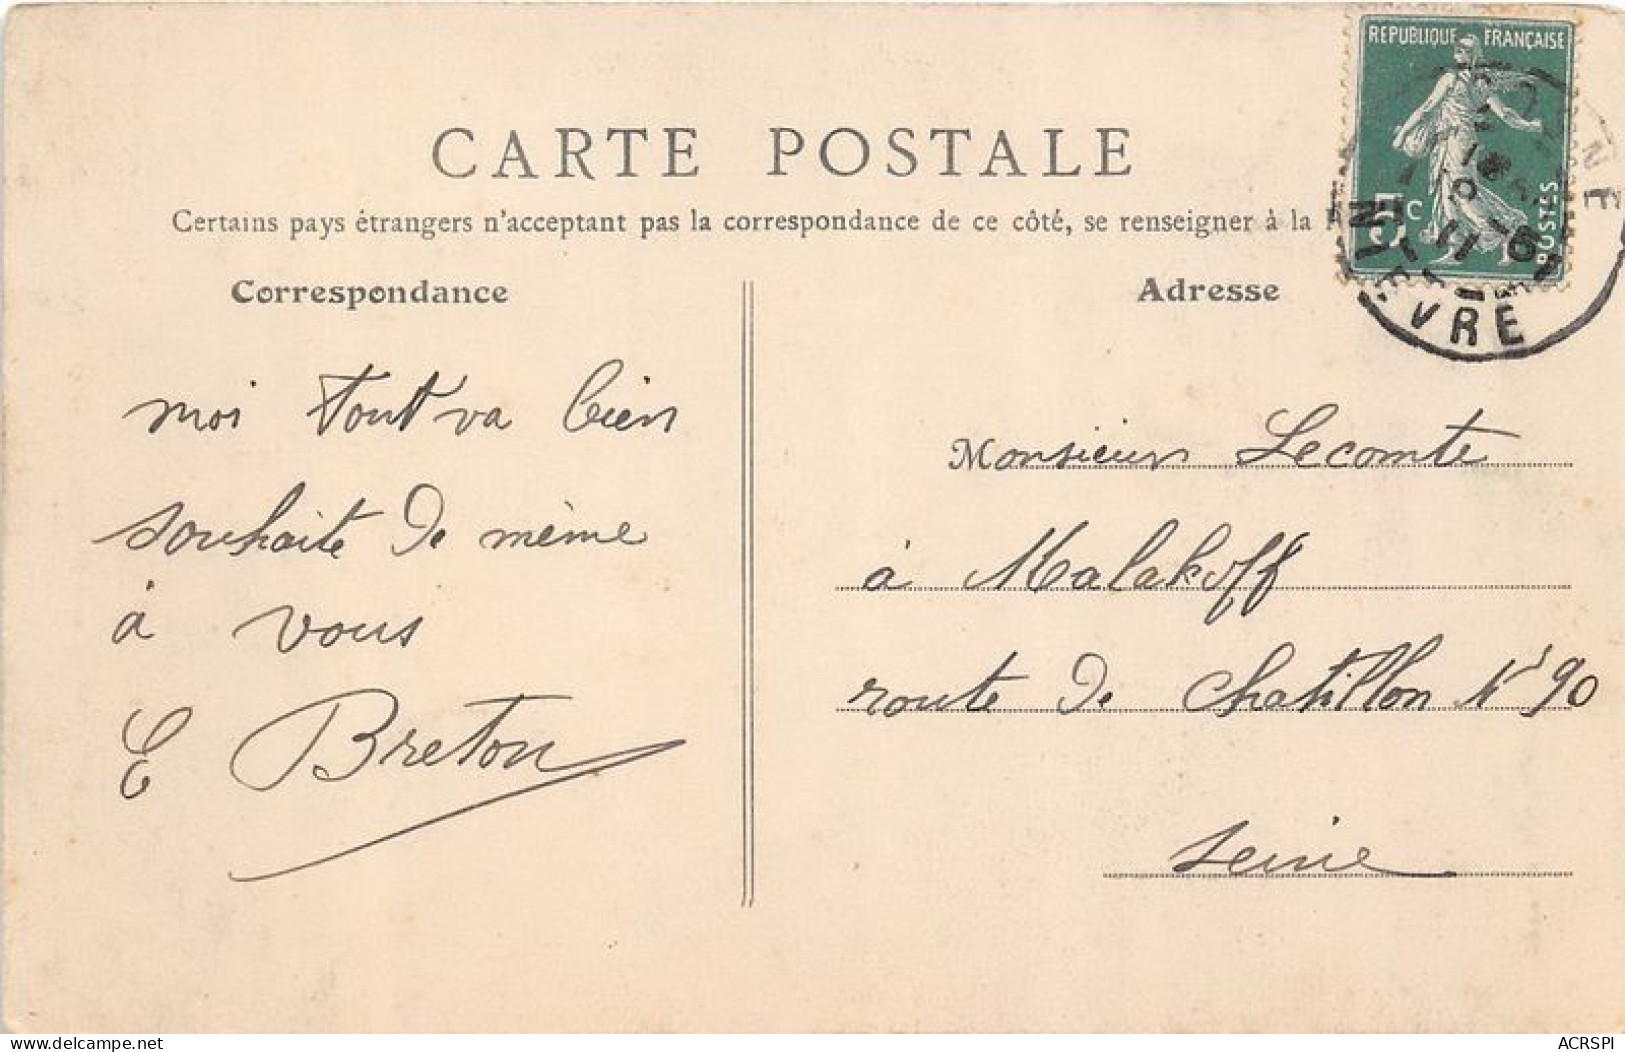 REPUBLIQUE FRANÇAISE
5c
POSTES
CARTE POSTALE
Certains pays étrangers n'acceptant pas la correspondance de ce côté, se renseigner à la
Correspondance
Adresse
moi tout va bien
souhaite de même
à vous
E Breton
Monsieur Lecomte
à Malakoff
route de Chatillon N° 90
Seine
www.delcampe.net
ACRSPI